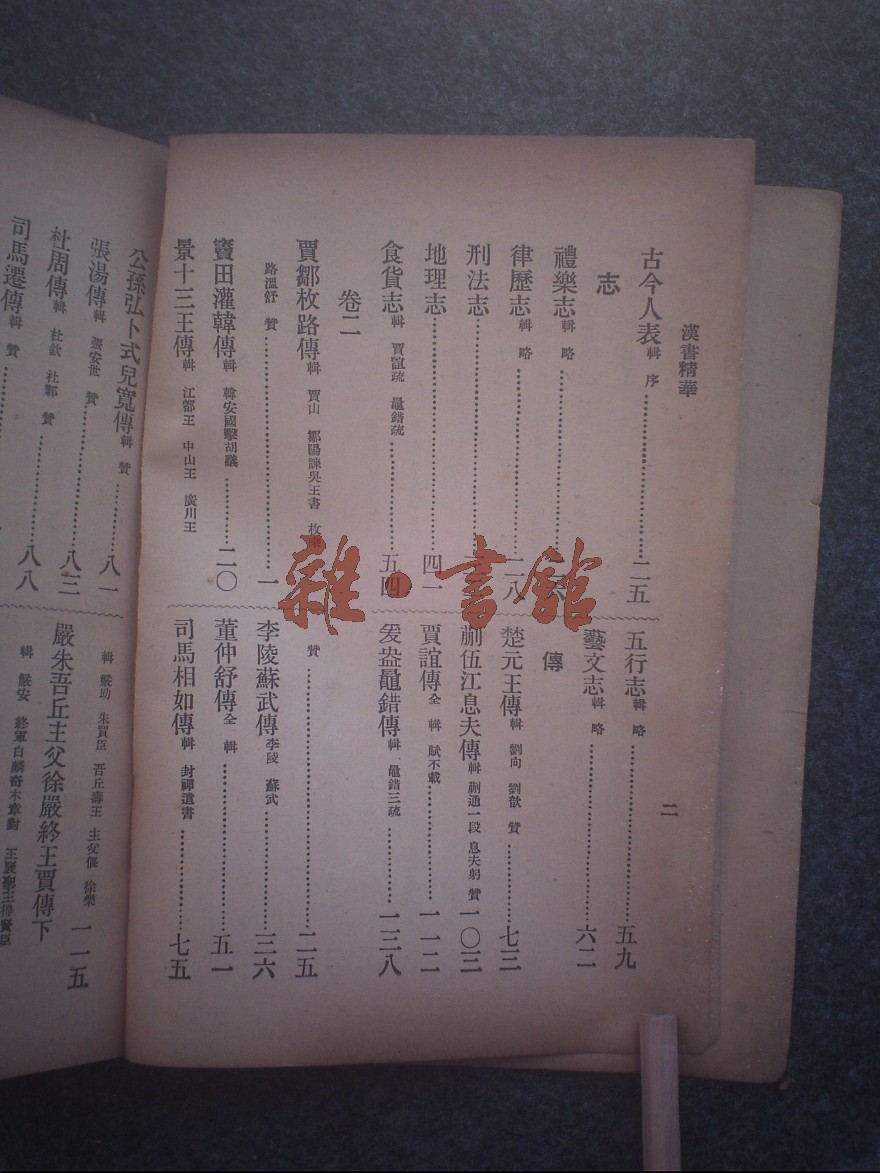 漢書精華
二
古今人表 輯 序 二五
志
禮樂志 輯 略
律歷志 輯 略 二八
刑法志
地理志 四一
食貨志 輯 賈誼疏 鼂錯疏 五四
五行志 輯 略 五九
藝文志 輯 略 六二
傳
楚元王傳 輯 劉向 劉歆 贊 七三
蒯伍江息夫傳 輯 蒯通一段 息夫躬 贊 一〇三
賈誼傳 全 輯 賦不載 一一二
爰盎鼂錯傳 輯 鼂錯三疏 一三八
卷二
賈鄒枚路傳 輯 賈山 鄒陽諫吳王書 枚
路溫舒 贊 一
竇田灌韓傳 輯 韓安國擊胡議 二〇
景十三王傳 輯 江都王 中山王 廣川王
贊 二五
李陵蘇武傳 李陵 蘇武 三六
董仲舒傳 全 輯 五一
司馬相如傳 輯 封禪遺書 七五
公孫弘卜式兒寬傳 輯 贊 八一
張湯傳 輯 張安世 贊 八三
杜周傳 輯 杜欽 杜鄴 贊
司馬遷傳 輯 贊 八八
輯 嚴助 朱買臣 吾丘壽王 主父偃 徐樂
嚴朱吾丘主父徐嚴終王賈傳下 一一五
輯 嚴安 終軍白麟奇木對 王褒聖主得賢臣
雜·書館